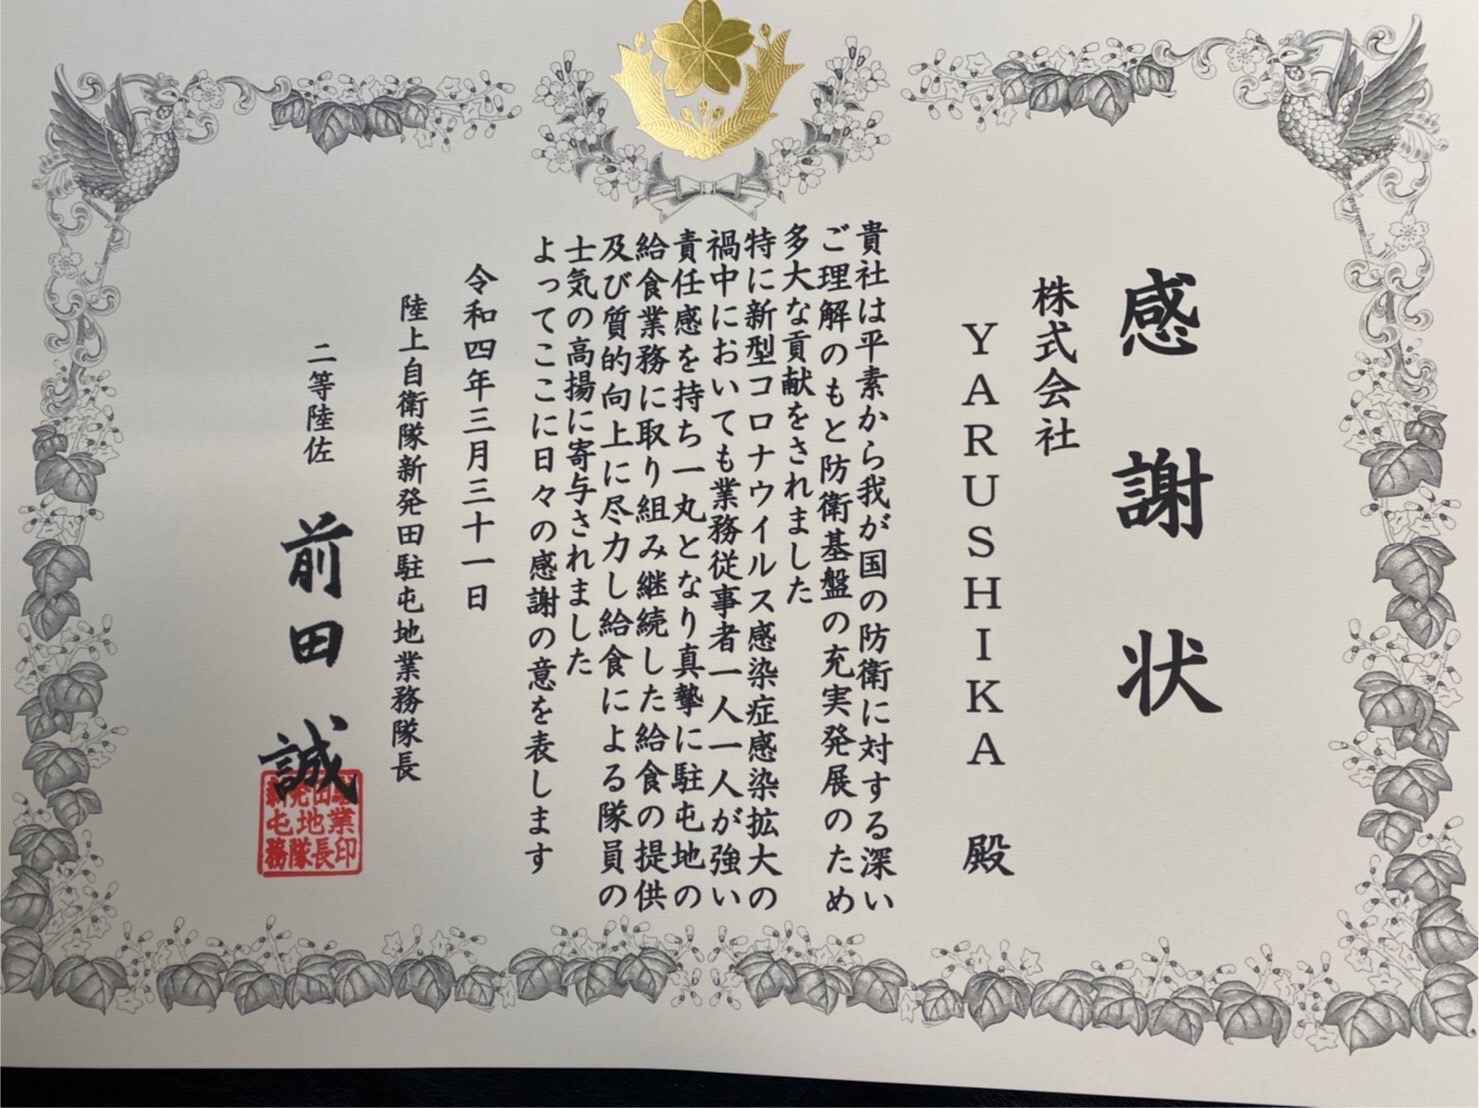 感謝状
株式会社
YARUSHIKA 殿
貴社は平素から我が国の防衛に対する深い
ご理解のもと防衛基盤の充実発展のため
多大な貢献をされました
特に新型コロナウイルス感染症感染拡大の
禍中においても業務従事者一人一人が強い
責任感を持ち一丸となり真摯に駐屯地の
給食業務に取り組み継続した給食の提供
及び質的向上に尽力し給食による隊員の
士気の高揚に寄与されました
よってここに日々の感謝の意を表します
令和四年三月三十一日
陸上自衛隊新発田駐屯地業務隊長
二等陸佐 前田 誠
新発田駐
屯地業
務隊長印